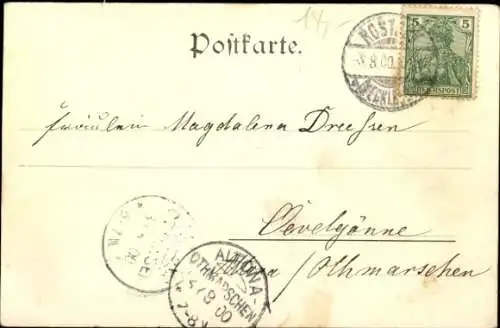 14,-
Postkarte.
ROST
8 00
5 5
REICHSPOST
Fräulein Magdalena Dreesen
Oevelgönne
Altona / Othmarschen
ALTONA-
OTHMARSCHEN
4/8 00
7-8